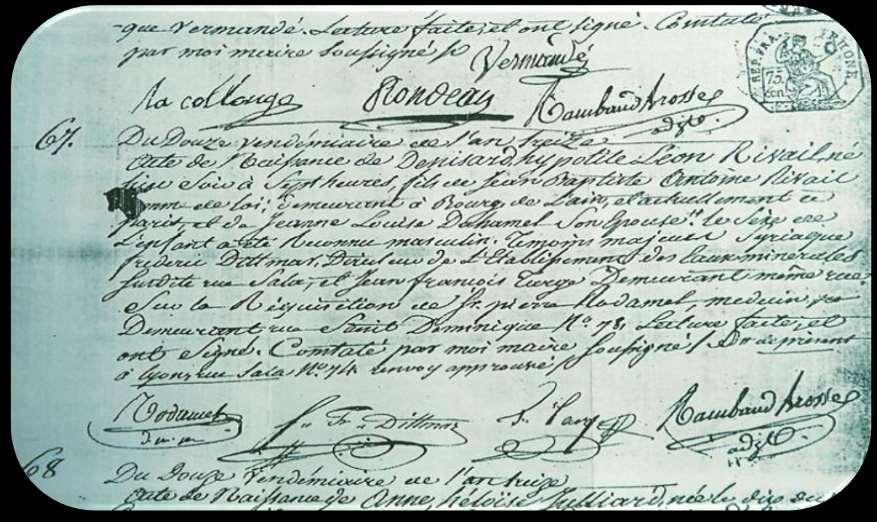 que Vermandé. Lecture faite, et ont signé. Constaté
par moi maire soussigné
Vermandé
REP. FRA. RHONE
75 cen
la collonge
Rondeau
Rambaud Brosse
adjt.
67.
Du Douze vendémiaire de l'an treize
Acte de Naissance de Denisard, hypolite Léon Rivail, né
hier soir à Sept heures, fils de Jean Baptiste Antoine Rivail
homme de loi; demeurant à Bourg de l'ain, et actuellement à
Paris, et de Jeanne Louise Duhamel Son épouse. le Sexe de
L'enfant a été Reconnu masculin. Temoins majeurs Syriaque
frideric Dittmar, Directeur de l'Etablissement des Eaux minérales
Susdite rue Sala, et Jean françois Targe Demeurant même rue.
Sur la Réquisition de Sr. pierre Rodamel, médecin,
Demeurant rue Saint Dominique No. 78. Lecture faite, et
ont Signé. Constaté par moi maire Soussigné
à Lyon, rue Sala No. 74. renvoy approuvé
Rodamel
d. m. m
Fr. Dittmar
Rambaud Brosse
adjt.
68
Du Douze Vendémiaire de l'an treize
Acte de Naissance de Anne, héloïse Julliard, née le dix du